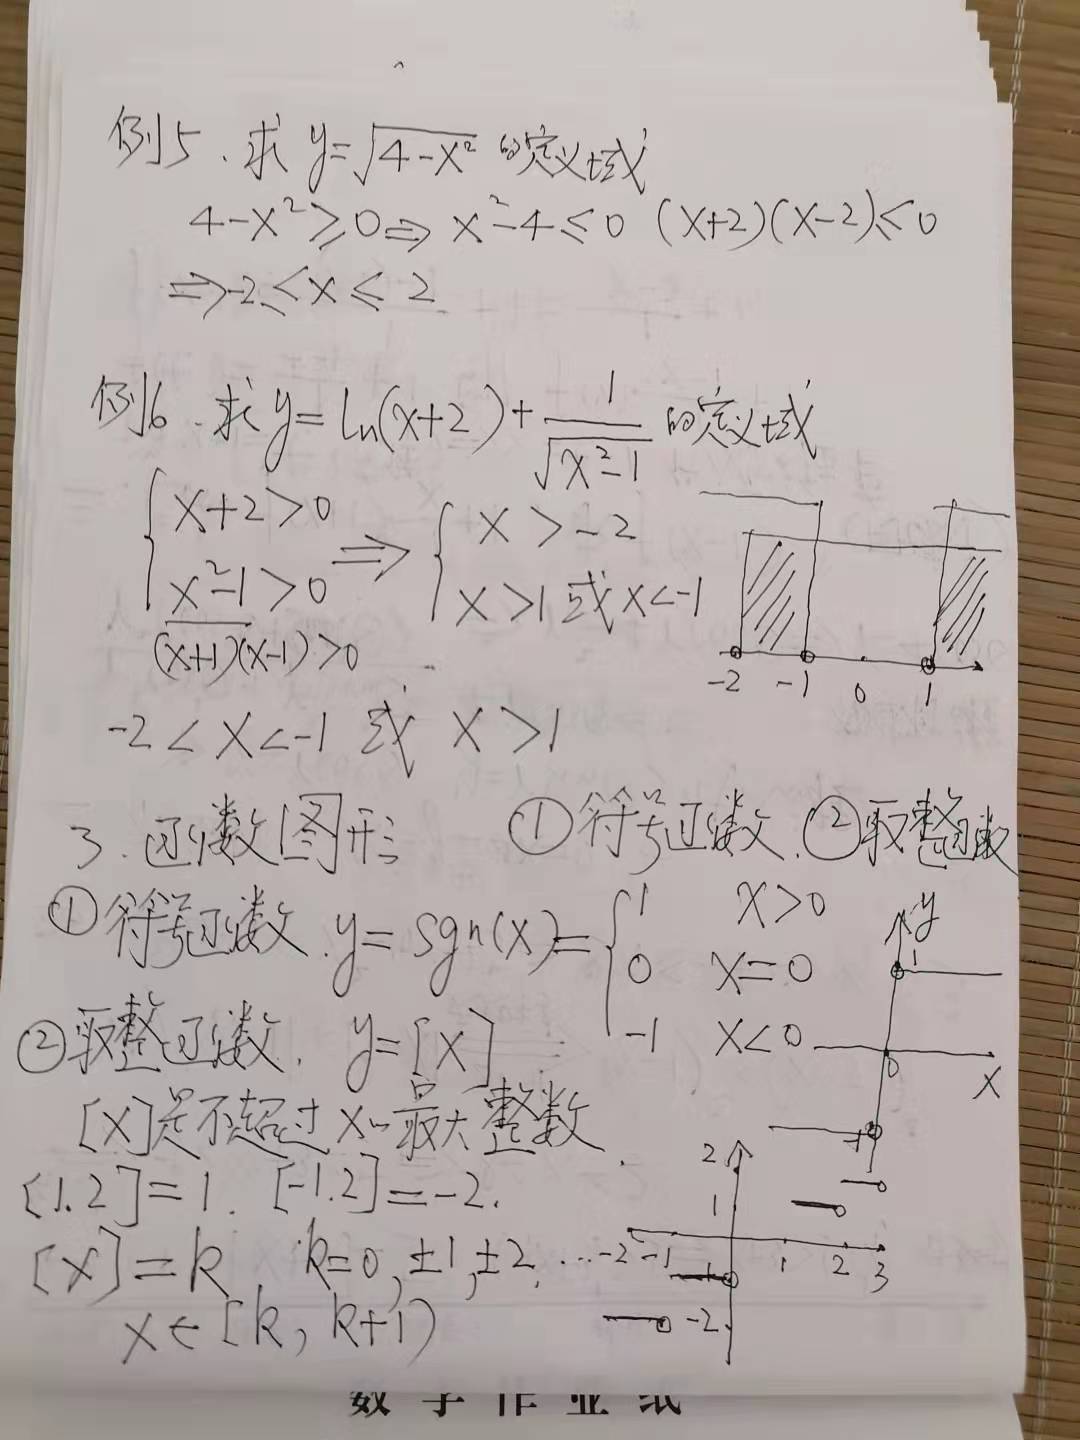 例5.求 y=√(4-x²) 的定义域
4-x²≥0⇒ x²-4≤0 (x+2)(x-2)≤0
⇒-2≤x≤2
例6.求 y=ln(x+2)+1/√(x²-1) 的定义域
{x+2>0 ⇒ {x>-2
x²-1>0 x>1或x<-1
(x+1)(x-1)>0
-2 -1 0 1
-2<x<-1 或 x>1
3.函数图形 ①符号函数.②取整函数
①符号函数.y=sgn(x)={1 x>0
0 x=0
-1 x<0
y 1 0 x -1
②取整函数. y=[x]
[x]是不超过x的最大整数.
[1.2]=1. [-1.2]=-2.
[x]=k, k=0,±1,±2,…
x∈[k,k+1)
2
1
-2 -1 1 2 3
-1
-2
数学作业纸